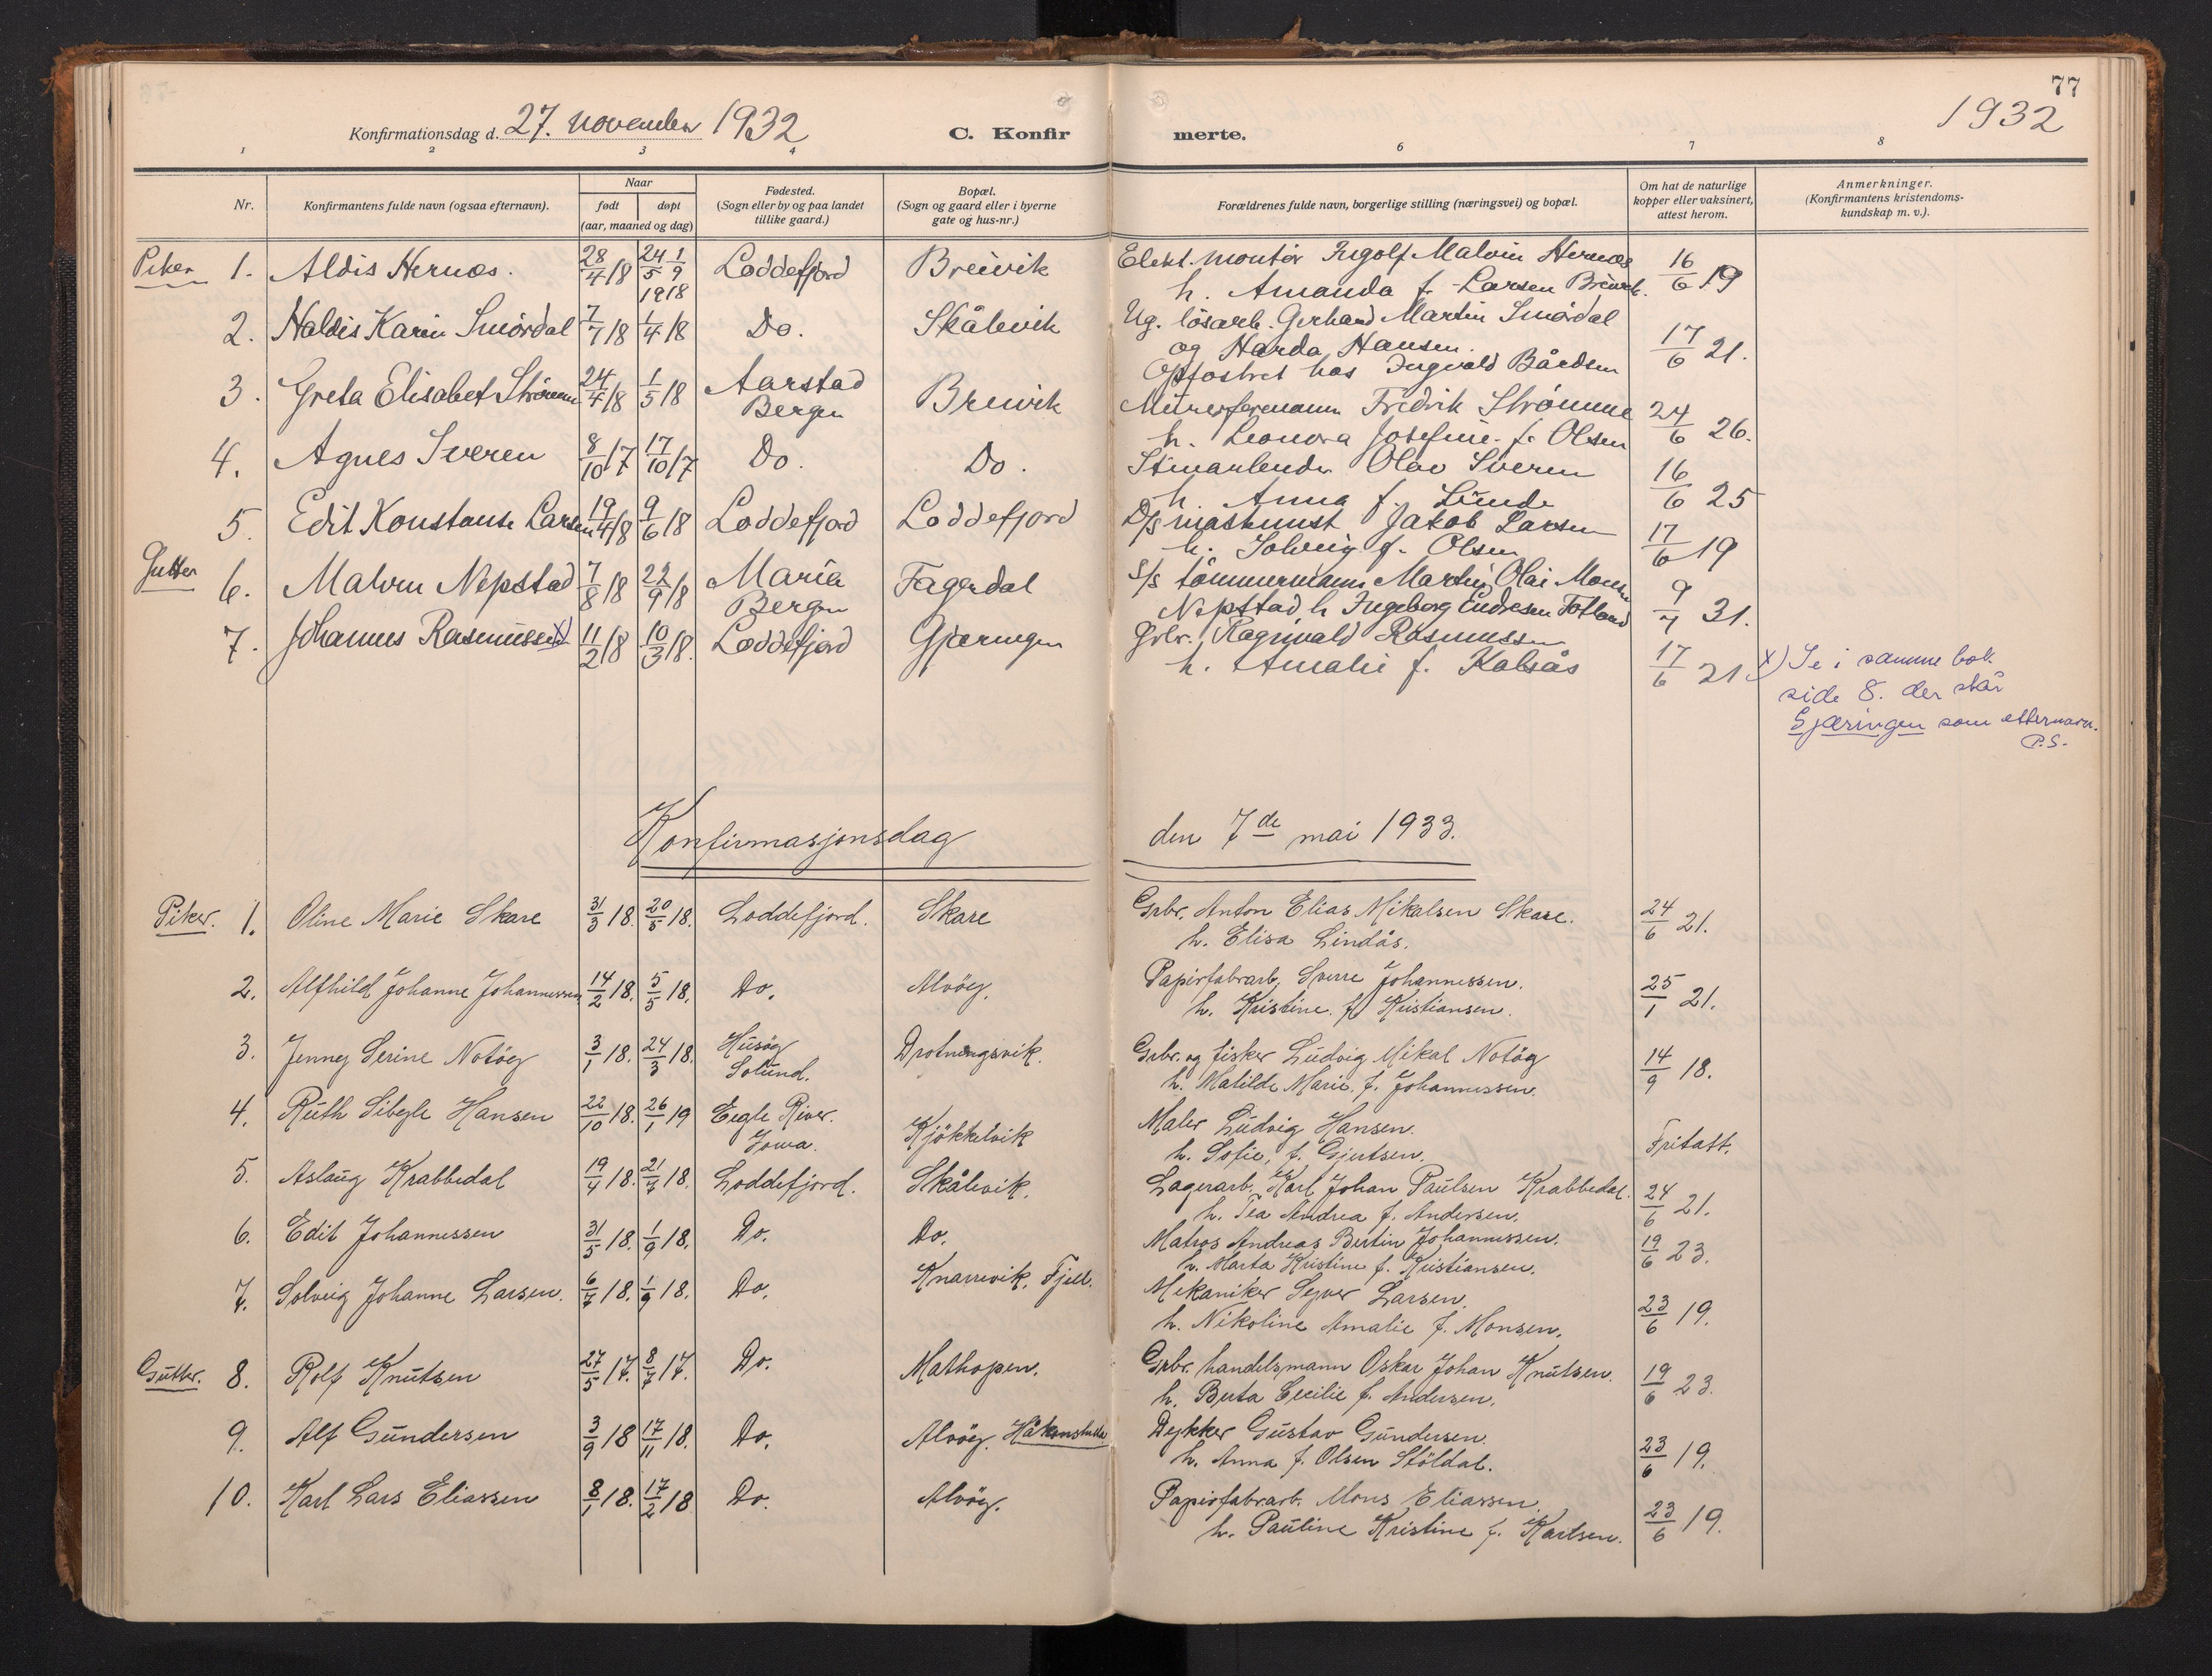 77
1932
Konfirmationsdag d. 27. november 1932
C. Konfirmerte.
1 2 3 4 6 7 8
Nr.
Konfirmantens fulde navn (ogsaa efternavn).
Naar
født døpt
(aar, maaned og dag)
Fødested.
(Sogn eller by og paa landet
tillike gaard.)
Bopæl.
(Sogn og gaard eller i byerne
gate og hus-nr.)
Forældrenes fulde navn, borgerlige stilling (næringsvei) og bopæl.
Om hat de naturlige
kopper eller vaksinert,
attest herom.
Anmerkninger.
(Konfirmantens kristendoms-
kundskap m. v.).
Piker 1. Aldis Hernæs. 28/4 18 24/5 1/9 1918 Loddefjord Breivik Elekt. montør Ingolf Malvin Hernæs
h. Amanda f. Larsen Breivik. 16/6 19
2. Haldis Karin Smørdal 7/7 18 1/4 18 Do. Skålevik Ug. løsarb. Gerhard Martin Smørdal
og Harda Hansen.
Opfostret hos Ingvald Bårdsen 17/6 21.
3. Greta Elisabet Strømme 24/4 18 1/5 18 Aarstad Bergen Breivik Murerformann Fredrik Strømme
h. Leonora Josefine f. Olsen 24/6 26.
4. Agnes Sveren 8/10 17 17/10 17 Do. Do. Stenarbeider Olav Sveren
h. Anna f. Lunde 16/6 25
5. Edit Konstanse Larsen 19/4 18 9/6 18 Loddefjord Loddefjord D/s maskinist Jakob Larsen
h. Solveig f. Olsen 17/6 19
Gutter 6. Malvin Nepstad 7/8 18 22/9 18 Maria Bergen Fagerdal S/s tømmermann Martin Olai
Nepstad h Ingeborg Endresen Totland 9/7 31.
7. Johannes Rasmussen x) 11/2 18 10/3 18. Loddefjord Gjæringen Grbr. Ragnvald Rasmussen
h. Amalie f. Kalsås 17/6 21
x) Se i samme bok
side 8. der står
Gjæringen som etternavn.
P.S.
Konfirmasjonsdag den 7de mai 1933.
Piker. 1. Oline Marie Skare 31/3 18. 20/5 18. Loddefjord. Skare Grbr. Anton Elias Mikalsen Skare.
h. Elisa Lindås. 24/6 21.
2. Alfhild Johanne Johannessen 14/2 18. 5/5 18. Do. Alvöy. Papirfabrarb. Sverre Johannessen.
h. Kristine f. Kristiansen. 25/1 21.
3. Jenny Serine Notöy 3/1 18. 24/3 18. Husöy Solund. Drotningsvik. Grbr. og fisker Ludvig Mikal Notöy
h. Matilde Marie, f. Johannessen. 14/9 18.
4. Ruth Sibyle Hansen 22/10 18. 26/1 19 Eegle River. Jowa. Kjökkelvik Maler Ludvig Hansen.
h. Sofie, f. Gjertsen. Fritatt.
5. Aslaug Krabbedal 19/4 18. 21/7 18. Loddefjord. Skålevik. Lagerarb. Karl Johan Paulsen Krabbedal.
h. Tea Andrea f. Andersen. 24/6 21.
6. Edit Johannessen 31/5 18. 1/9 18. Do. Do. Matros Andreas Bertin Johannessen.
h. Marta Kristine f. Kristiansen. 19/6 23.
7. Solveig Johanne Larsen. 6/7 18. 1/9 18. Do. Knarrevik, Fjell. Mekaniker Syver Larsen.
h. Nikoline Amalie f. Monsen. 23/6 19.
Gutter. 8. Rolf Knutsen 27/5 17. 8/7 17. Do. Mathopen. Grbr. handelsmann Oskar Johan Knutsen.
h. Berta Cecilie f. Andersen. 19/6 23.
9. Alf Gundersen 3/9 18 17/11 18. Do. Alvöy. Håkonshella Dykker Gustav Gundersen.
h. Anna f. Olsen Stöldal. 23/6 19.
10. Karl Lars Eliassen 8/1 18. 17/2 18 Do. Alvöy. Papirfabrarb. Mons Eliassen.
h. Pauline Kristine f. Karlsen. 23/6 19.